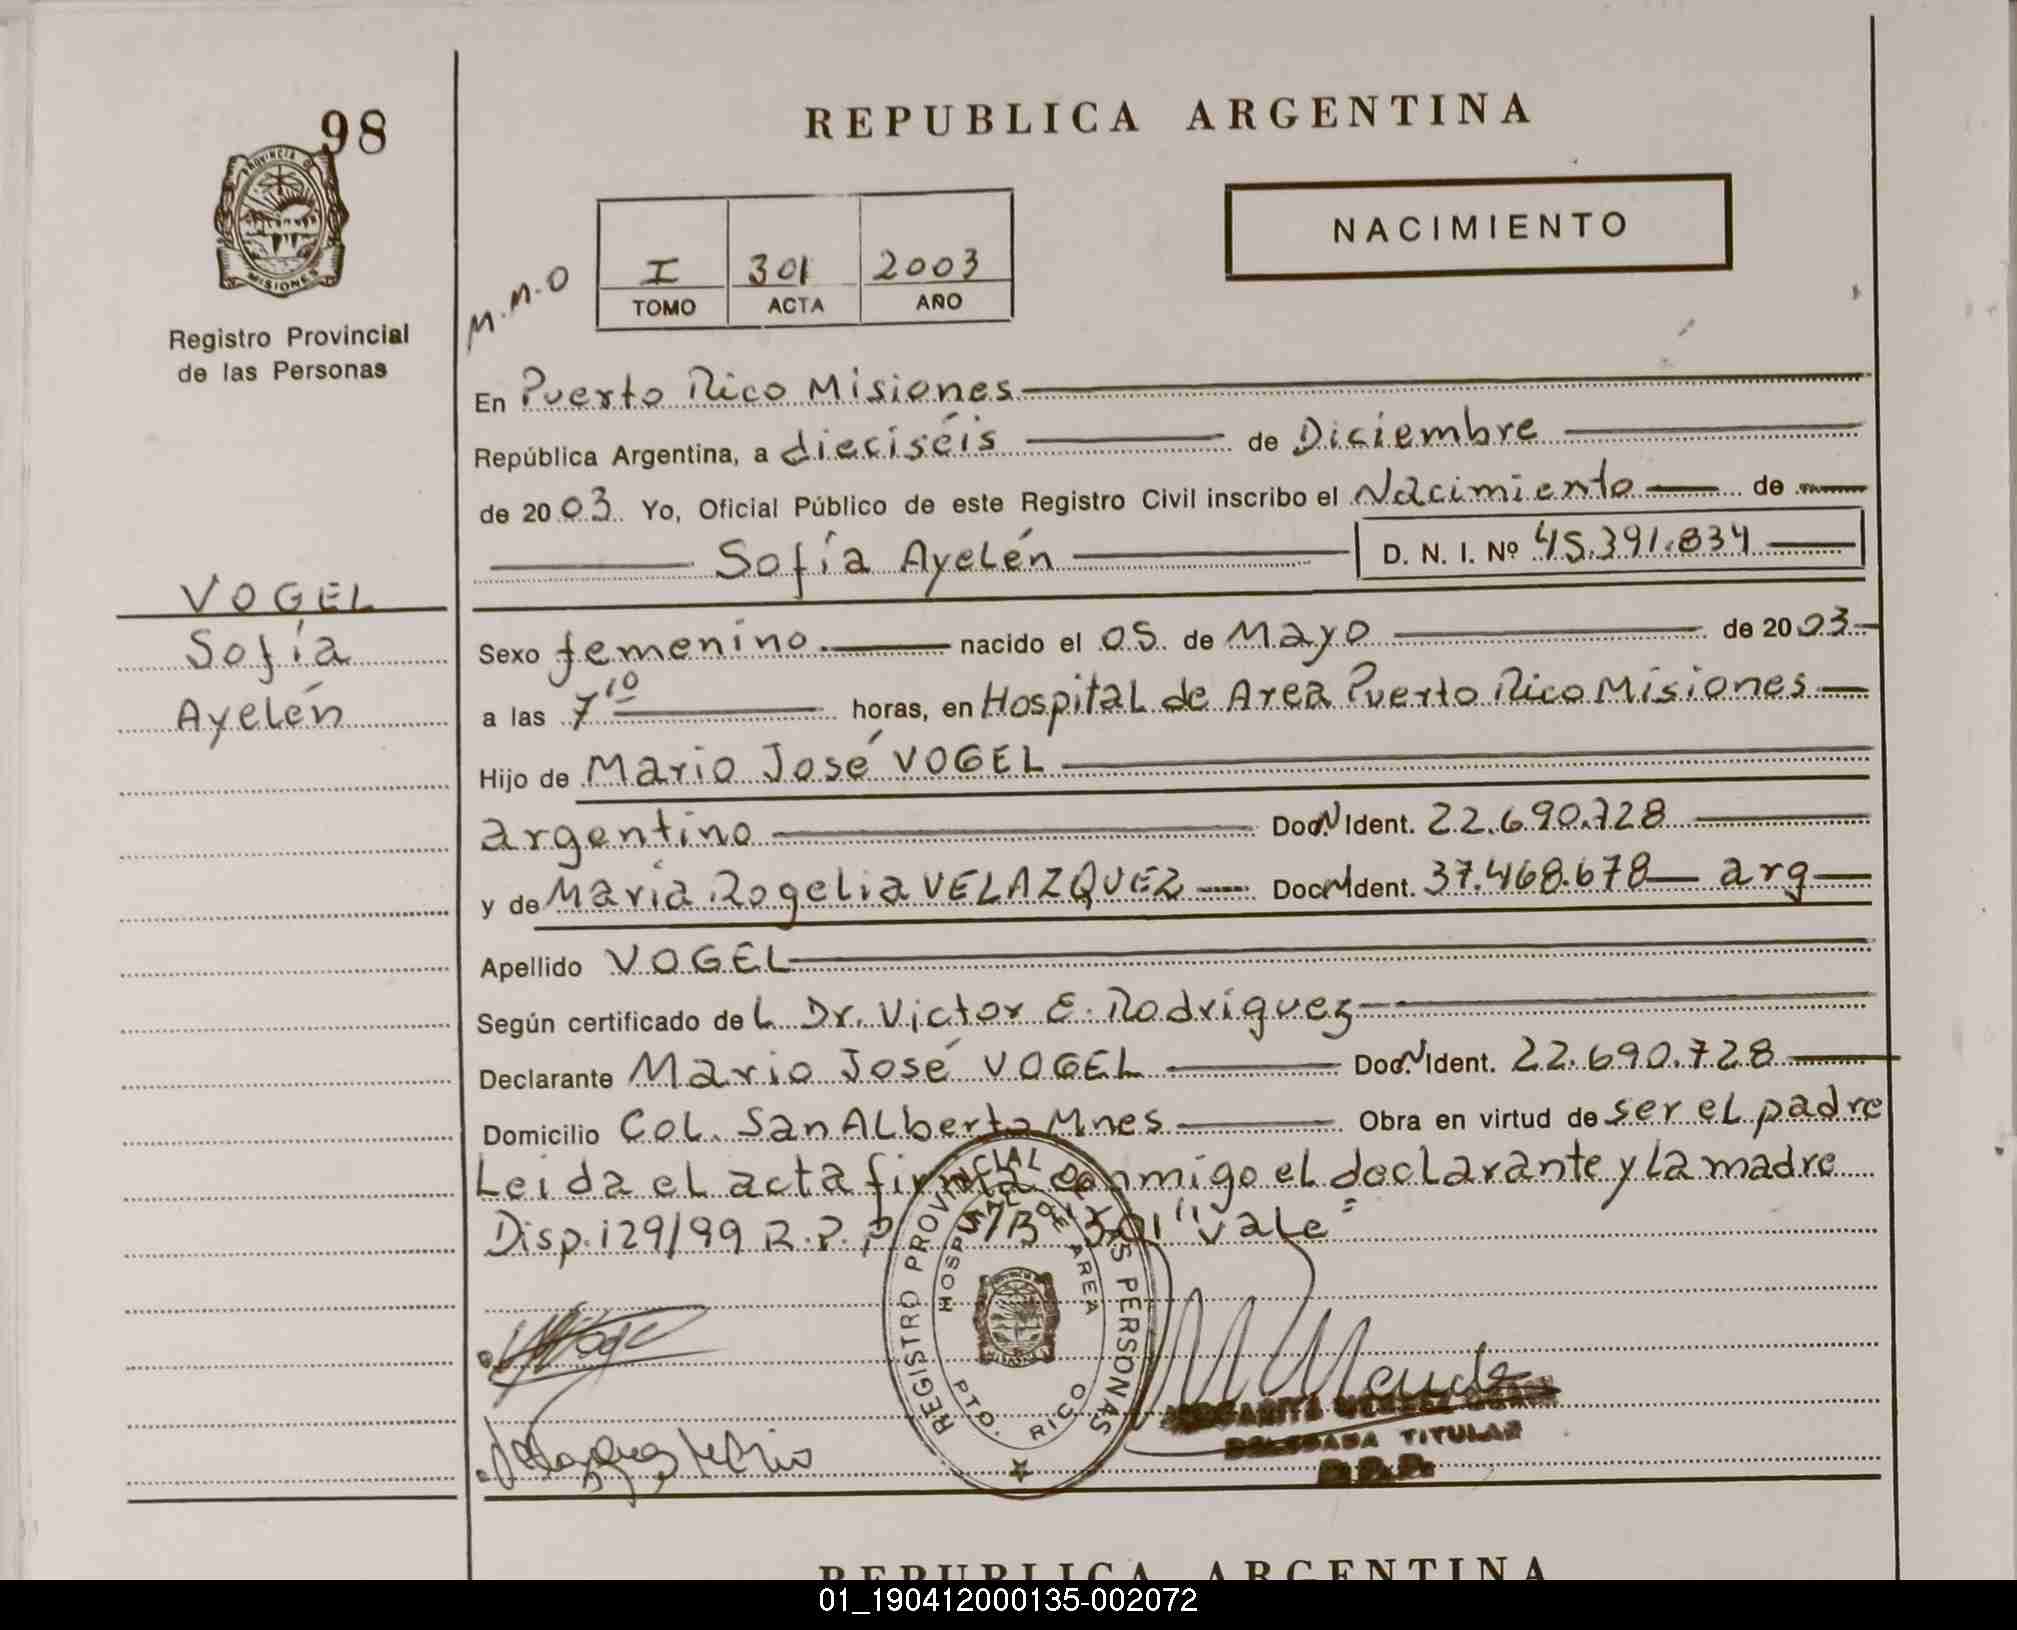 98
PROVINCIA DE
MISIONES
Registro Provincial
de las Personas
VOGEL
Sofía
Ayelén
REPUBLICA ARGENTINA
NACIMIENTO
M.M.O
I 301 2003
TOMO ACTA AÑO
En Puerto Rico Misiones
República Argentina, a dieciséis de Diciembre
de 2003 Yo, Oficial Público de este Registro Civil inscribo el Nacimiento de
Sofía Ayelén D. N. I. Nº 45.391.834
Sexo femenino nacido el 05 de Mayo de 2003
a las 7 10 horas, en Hospital de Area Puerto Rico Misiones
Hijo de Mario José VOGEL
argentino Doc.N Ident. 22.690.728
y de María Rogelia VELAZQUEZ Doc.N Ident. 37.468.678 arg
Apellido VOGEL
Según certificado del Dr. Victor E. Rodriguez
Declarante Mario José VOGEL Doc.N Ident. 22.690.728
Domicilio Col. San Alberto Mnes Obra en virtud de ser el padre
Leida el acta firma conmigo el declarante y la madre
Disp. 129/99 R.P.P. "301" Vale"
REGISTRO PROVINCIAL DE LAS PERSONAS
HOSPITAL DE AREA
PTO. RICO
DELEGADA TITULAR
R.P.P.
REPUBLICA ARGENTINA
01_190412000135-002072